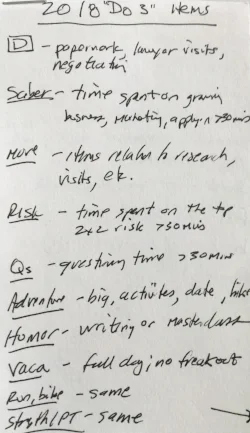 2018 "Do 3" Items
D - paperwork, lawyer visits,
negotiating
Saber - time spent on growing
business, marketing, applying >30mins
Move - items related to research,
visits, etc.
Risk - time spent on the top
2x2 risk >30mins
Qs - questioning time >30mins
Adventure - big, activites, date, hike
Humor - writing or Masterclass
Vaca - full day, no freakout
Run, bike - same
Strgth/PT - same